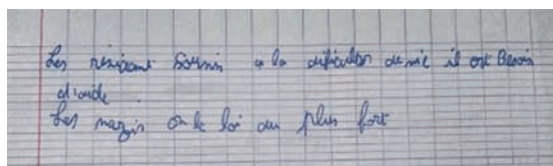 Les résidant soumis a la dificulter de vie il ont Besoin
d'aide.
Les nazis on le loi du plus fort